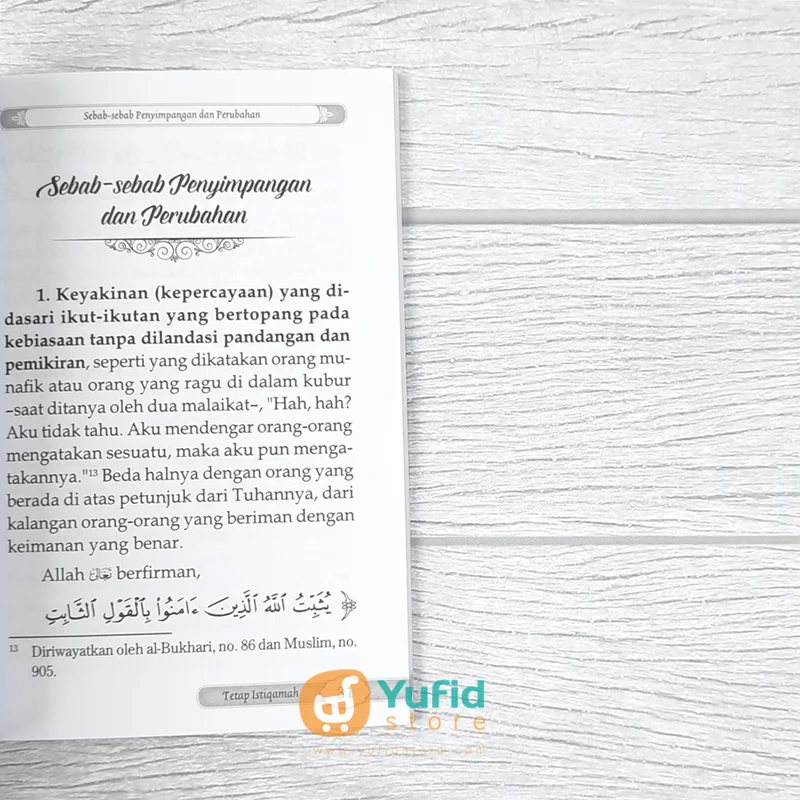 Sebab-sebab Penyimpangan dan Perubahan
Sebab-sebab Penyimpangan
dan Perubahan
1. Keyakinan (kepercayaan) yang di-
dasari ikut-ikutan yang bertopang pada
kebiasaan tanpa dilandasi pandangan dan
pemikiran, seperti yang dikatakan orang mu-
nafik atau orang yang ragu di dalam kubur
–saat ditanya oleh dua malaikat–, "Hah, hah?
Aku tidak tahu. Aku mendengar orang-orang
mengatakan sesuatu, maka aku pun menga-
takannya."¹³ Beda halnya dengan orang yang
berada di atas petunjuk dari Tuhannya, dari
kalangan orang-orang yang beriman dengan
keimanan yang benar.
Allah berfirman,
﴿ يُثَبِّتُ ٱللَّهُ ٱلَّذِينَ ءَامَنُوا۟ بِٱلْقَوْلِ ٱلثَّابِتِ
¹³ Diriwayatkan oleh al-Bukhari, no. 86 dan Muslim, no.
905.
Tetap Istiqamah
Yufid
store
www.yufidstore.com